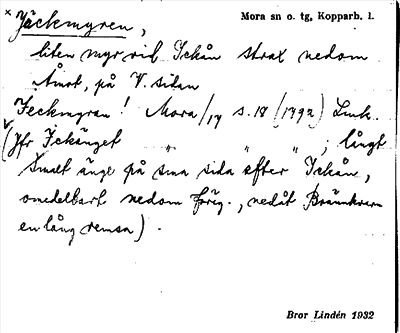 × Jäckmyren,
Mora sn o. tg, Kopparb. l.
liten myr vid Ickån strax nedom
Åmot, på V. sidan
Jeckmyran! Mora/14 s. 18 (1792) Lmk.
(Jfr Ickänget " " " ; långt
smalt änge på sma sida efter Ickån,
omedelbart nedom förig., nedåt Brännkvarn
en lång remsa).
Bror Lindén 1932